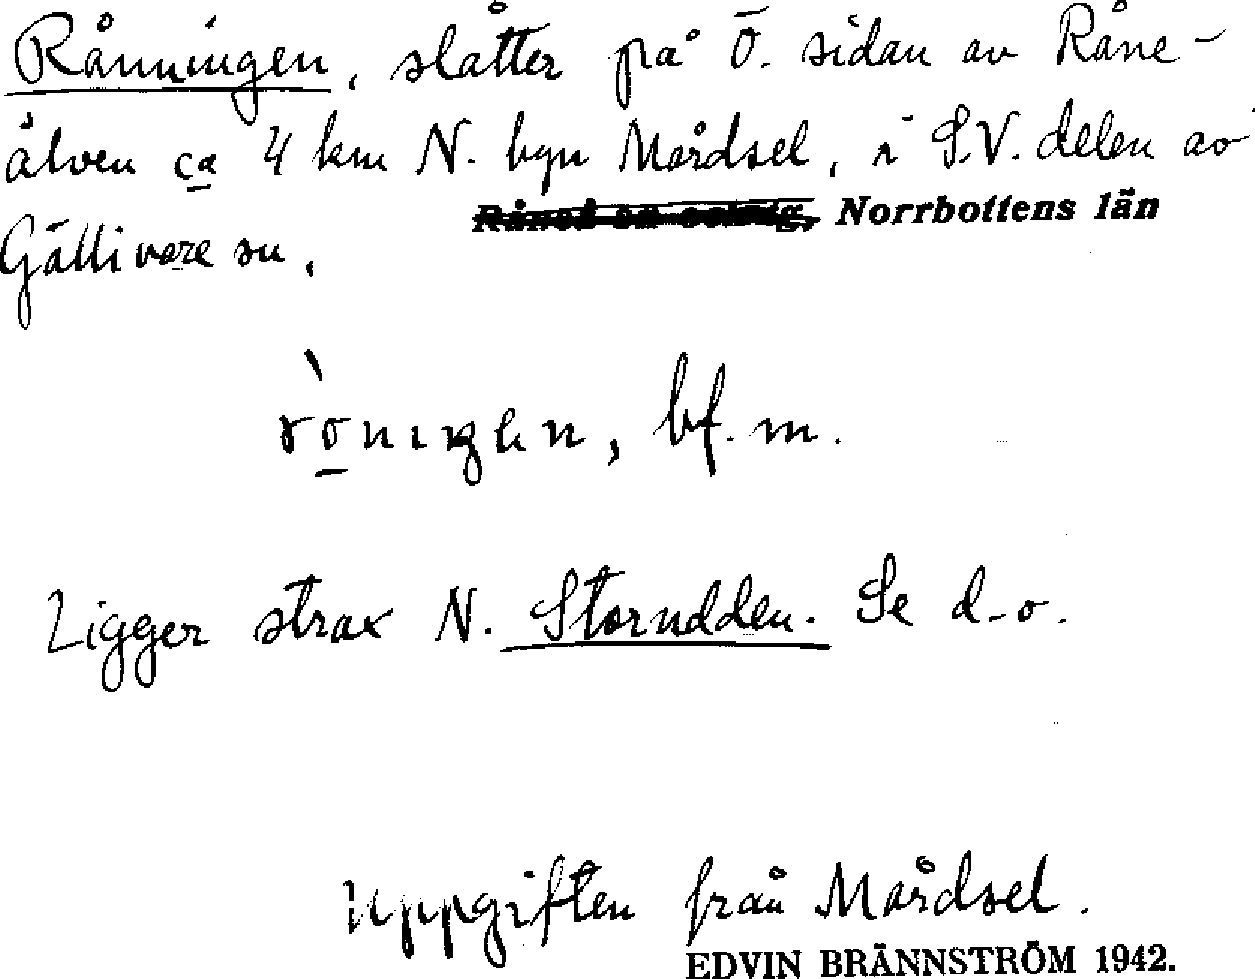 Rånningen, slåtter på Ö. sidan av Råne-
älven ca 4 km N. byn Mårdsel, i S.V. delen av
Råneå sn Norrbottens län
Gällivare sn.
bf. m.
Ligger strax N. Storudden. Se d-o.
Uppgiften från Mårdsel.
EDVIN BRÄNNSTRÖM 1942.